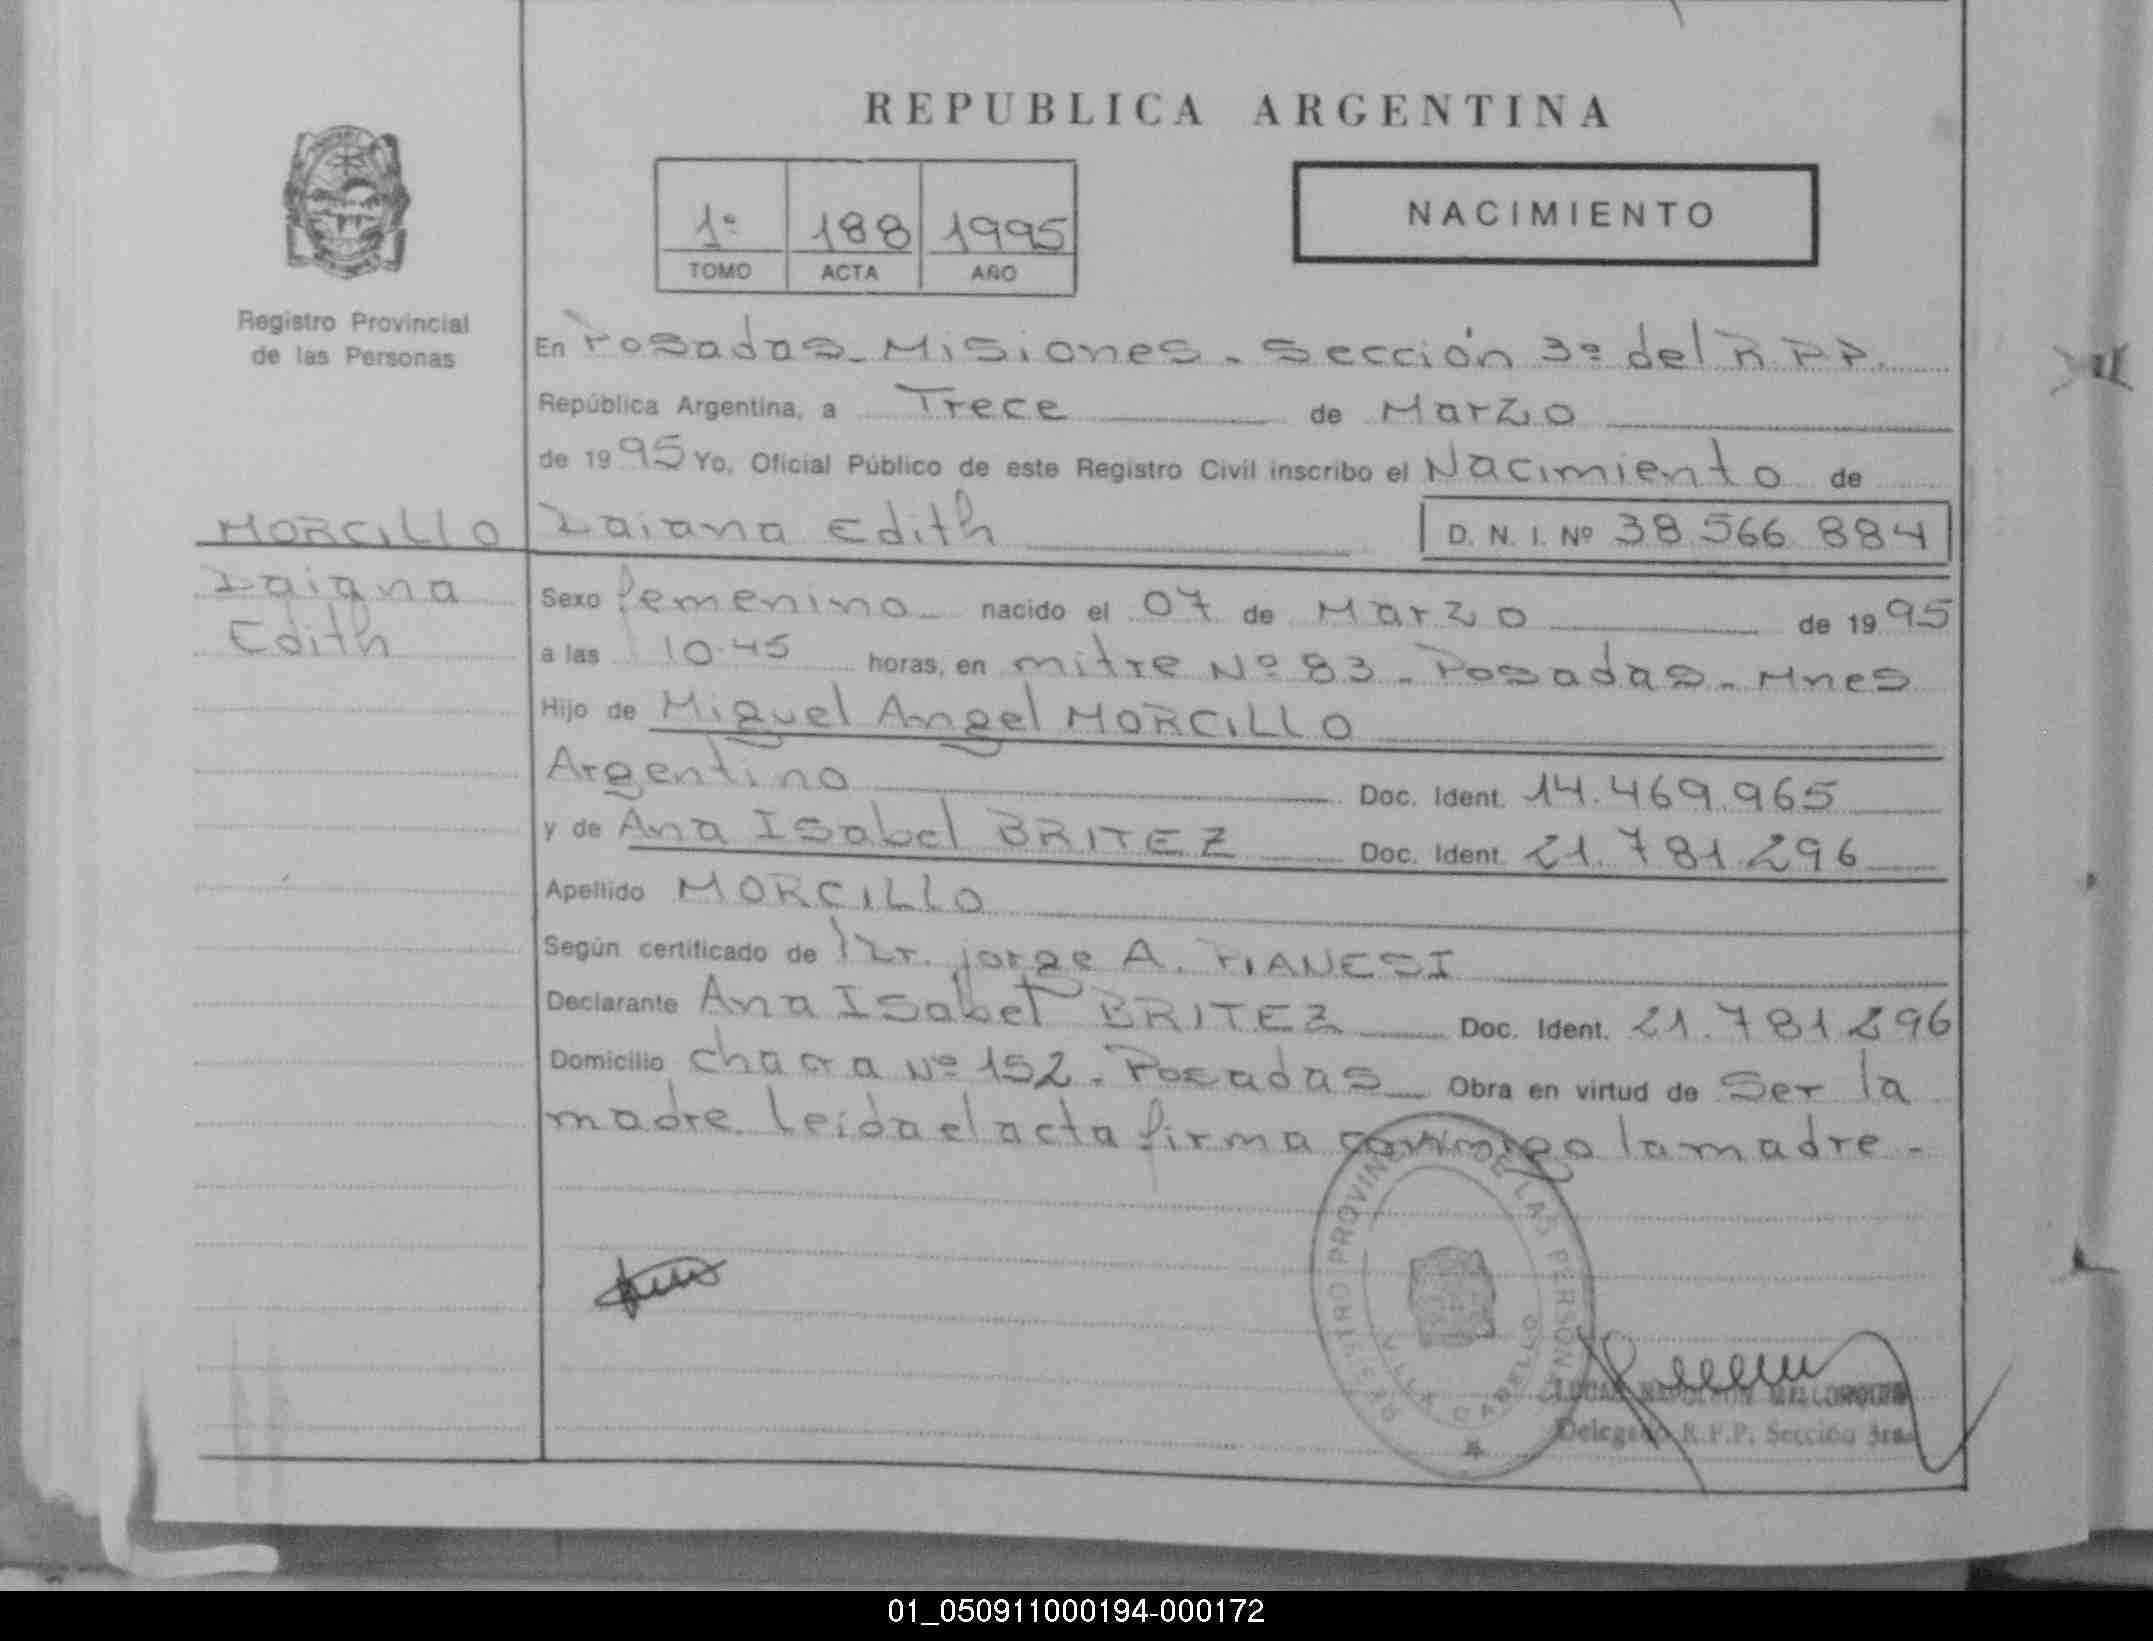 REPUBLICA ARGENTINA
1º 188 1995
TOMO ACTA AÑO
NACIMIENTO
Registro Provincial
de las Personas
En Posadas - Misiones - Sección 3º del R.P.P.
República Argentina, a Trece de Marzo
de 1995 Yo, Oficial Público de este Registro Civil inscribo el Nacimiento de
MORCILLO Daiana Edith D. N. I. Nº 38.566.884
Daiana
Edith
Sexo femenino - nacido el 07 de Marzo de 1995
a las 10.45 horas, en mitre Nº 83 - Posadas - Mnes
Hijo de Miguel Angel MORCILLO
Argentino Doc. Ident. 14.469.965
y de Ana Isabel BRITEZ Doc. Ident. 21.781.296
Apellido MORCILLO
Según certificado de Dr. Jorge A. PIANESI
Declarante Ana Isabel BRITEZ Doc. Ident. 21.781.296
Domicilio chacra Nº 152 - Posadas Obra en virtud de Ser la
madre. Leída el acta firma conmigo la madre -
REGISTRO PROVINCIAL DE LAS PERSONAS
VILLA CABELLO
LUCAS NAPOLEON
Delegado R.P.P. Sección 3ra.
01_050911000194-000172